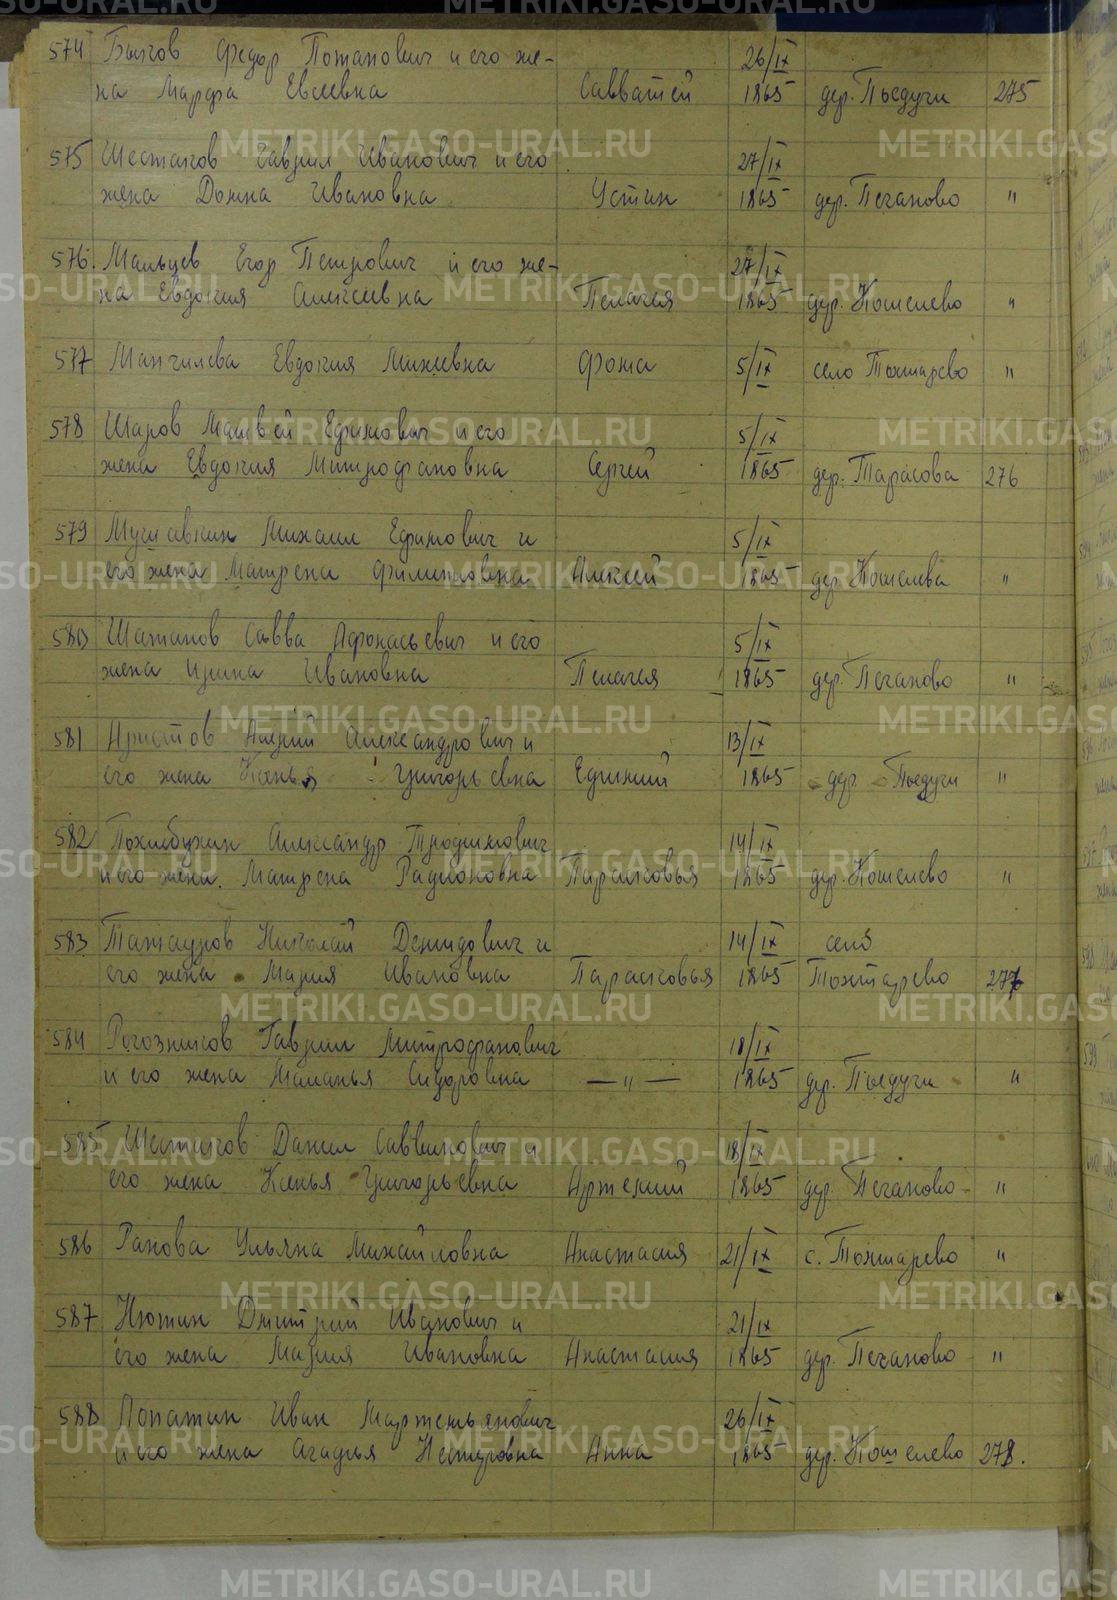 574 Бычов Федор Потапович и его же-
на Марфа Евсеевна Савватей 26/IX 1865 дер. Пьедуги 275
575 Шестаков Гаврил Иванович и его
жена Домна Ивановна Устин 27/IX 1865 дер. Пеганово "
576. Мальцев Егор Петрович и его же-
на Евдокия Алексеевна Пелагея 27/IX 1865 дер. Кошелево "
577 Евдокия Михеевна Фома 5/IX село Тохтарево "
578 Шаров Матвей Ефимович и его
жена Евдокия Митрофановна Сергей 5/IX 1865 дер. Тарасова 276
579 Михаил Ефимович и
его жена Матрена Филипповна Алексей 5/IX 1865 дер. Кошелева "
580 Шатапов Савва Афонасьевич и его
жена Ирина Ивановна Пелагея 5/IX 1865 дер. Пеганово "
581 Александрович и
его жена Ксенья Григорьевна Ефимий 13/IX 1865 дер. Пьедуги "
582 Александр Трофимович
и его жена. Матрена Радионовна Парасковья 14/IX 1865 дер. Кошелево "
583 Николай Демидович и
его жена Мария Ивановна Парасковья 14/IX 1865 село Тохтарево 277
584 Рогозников Гаврил Митрофанович
и его жена Маланья Сидоровна — " — 18/IX 1865 дер. Пьедуги "
585 Шестаков Данил Саввинович и
его жена Ксенья Григорьевна Артемий 18/IX 1865 дер. Пеганово "
586 Ульяна Михайловна Анастасия 21/IX с. Тохтарево "
587 Дмитрий Иванович и
его жена Мария Ивановна Анастасия 21/IX 1865 дер. Пеганово "
588 Лопатин Иван Мартемьянович
и его жена Агафья Нестеровна Анна 26/IX 1865 дер. Кошелево 278.
METRIKI.GASO-URAL.RU